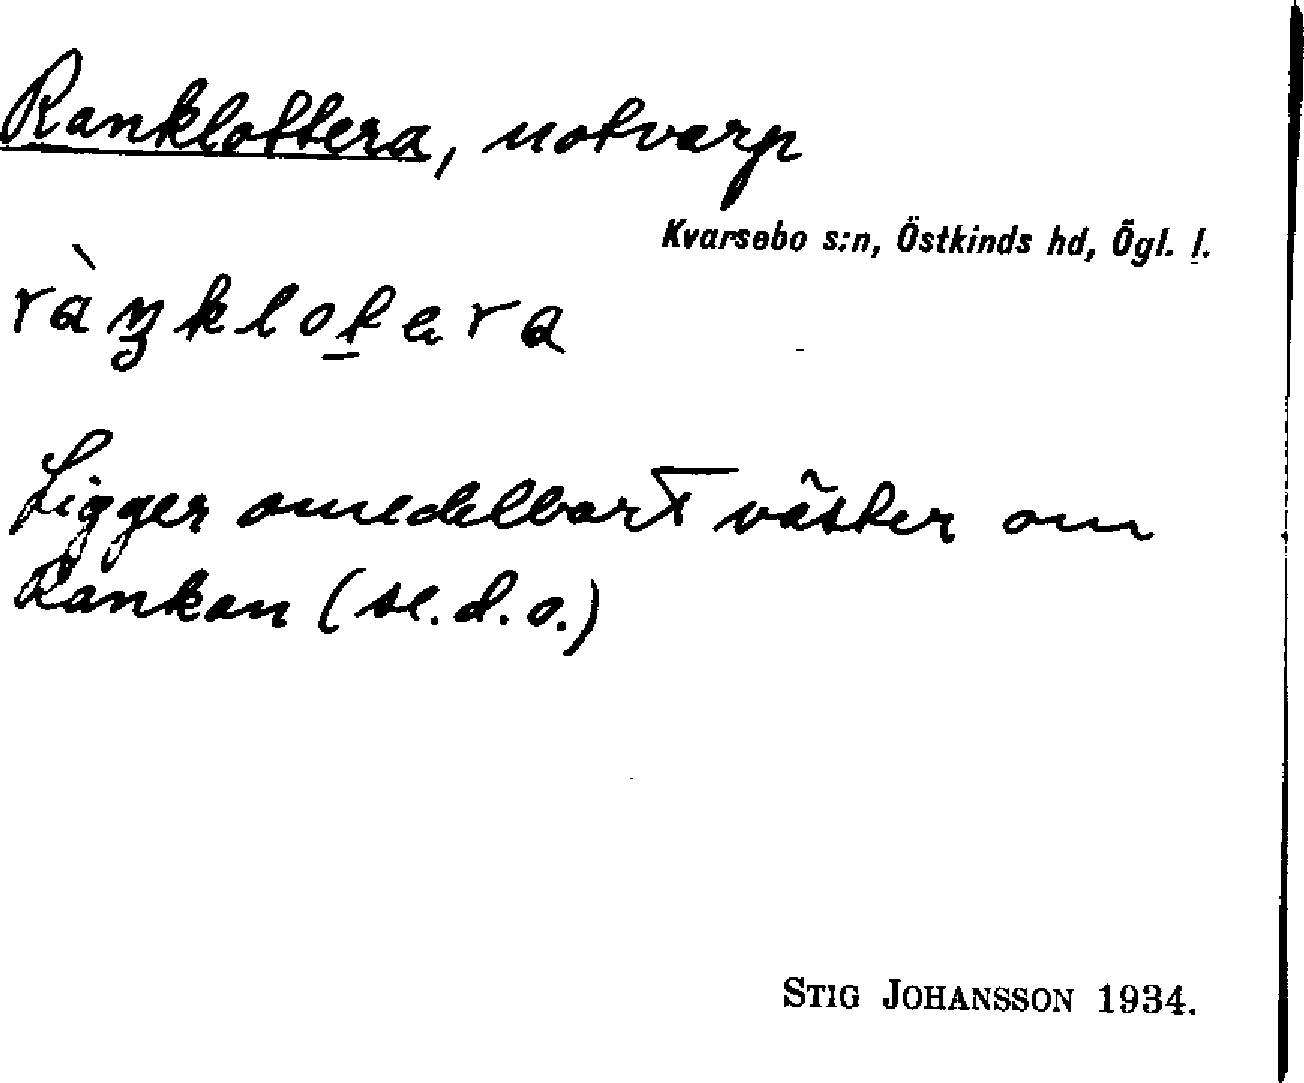 Ranklottera, notvarp
Kvarsebo s:n, Östkinds hd, Ögl. l.
ràŋkloṯera
Ligger omedelbart väster om
Rankan (se. d. o.)
STIG JOHANSSON 1934.